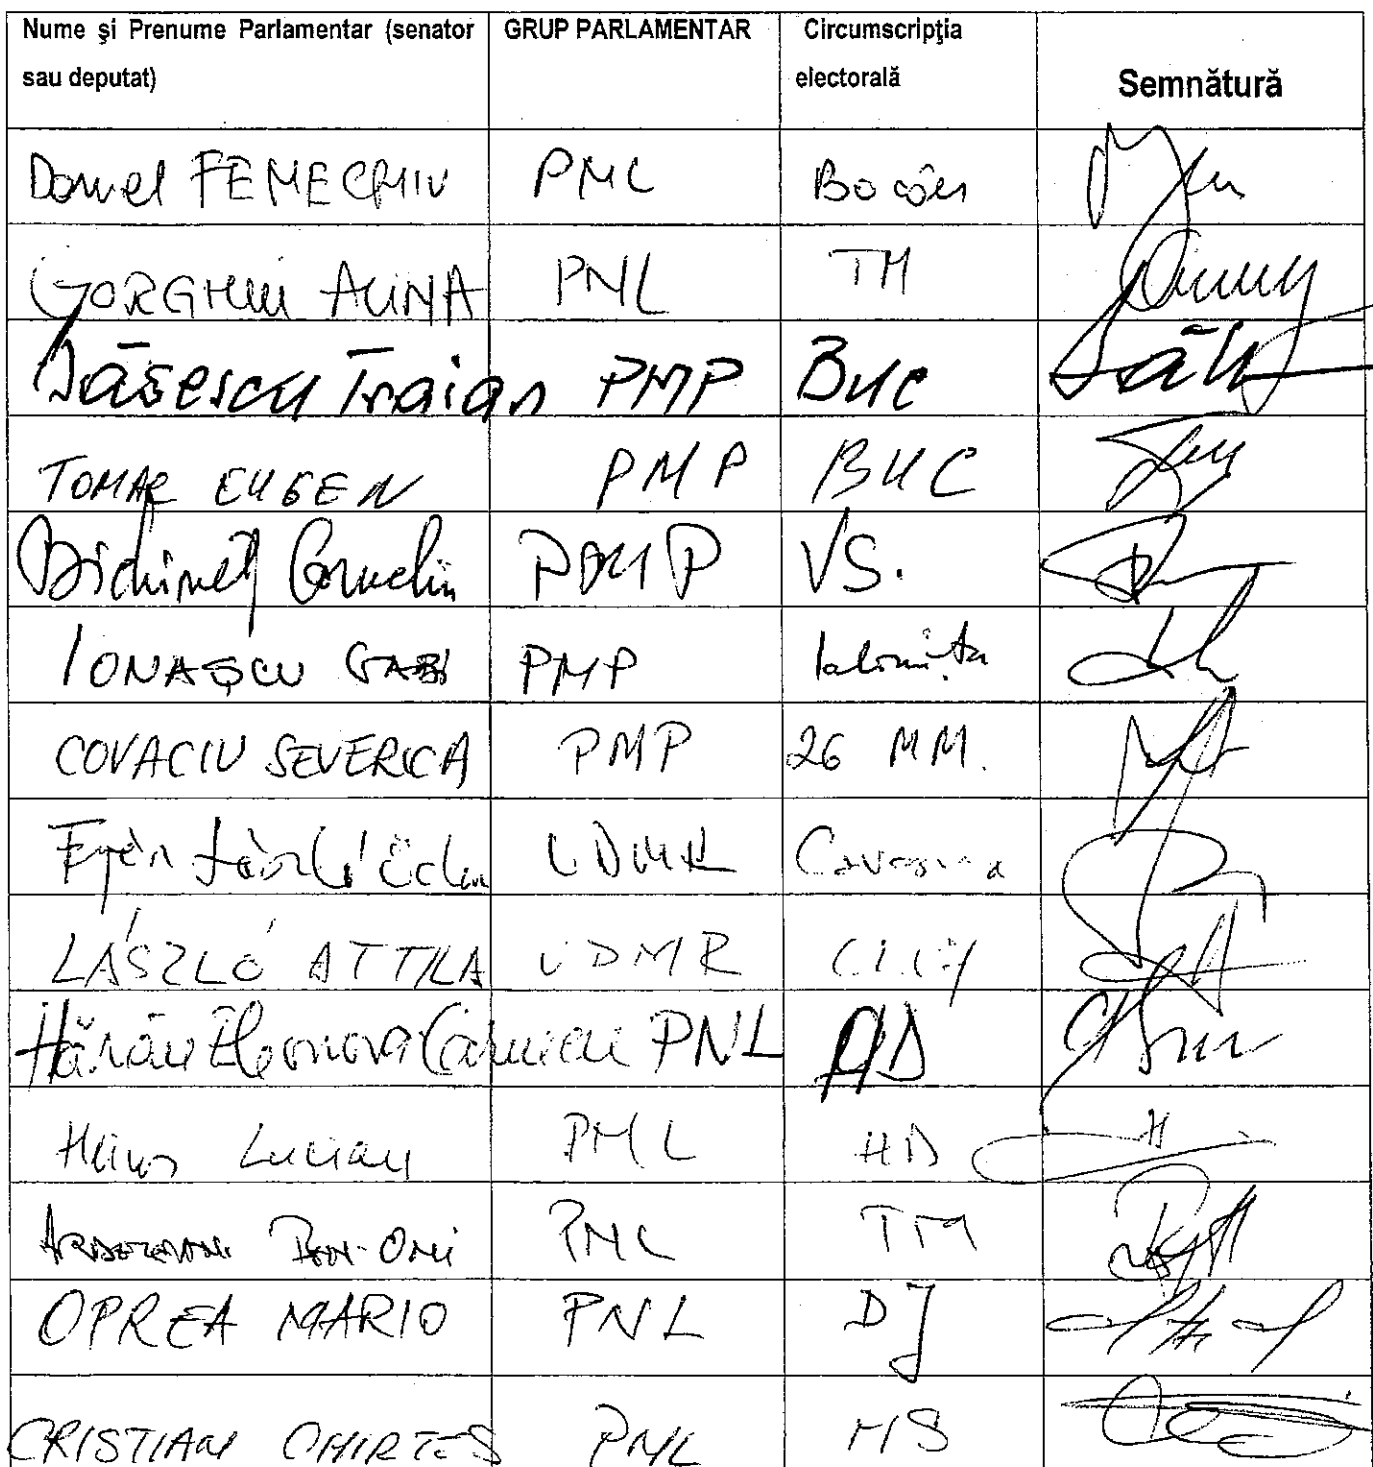 Nume și Prenume Parlamentar (senator sau deputat) GRUP PARLAMENTAR Circumscripţia electorală Semnătură
Daniel FENECHIU PNL Bacău
GORGHIU ALINA PNL TM
Băsescu Traian PMP BUC
TOMAC EUGEN PMP BUC
Bichineț Corneliu PMP VS.
IONAȘCU GABI PMP Ialomița
COVACIU SEVERICA PMP 26 MM.
UDMR Covasna
LÁSZLÓ ATTILA UDMR CLUJ
Hărău Eleonora Carmen PNL HD
Heiuș Lucian PNL HD
Ben-Oni PNL TM
OPREA MARIO PNL DJ
CRISTIAN CHIRTEȘ PNL MS